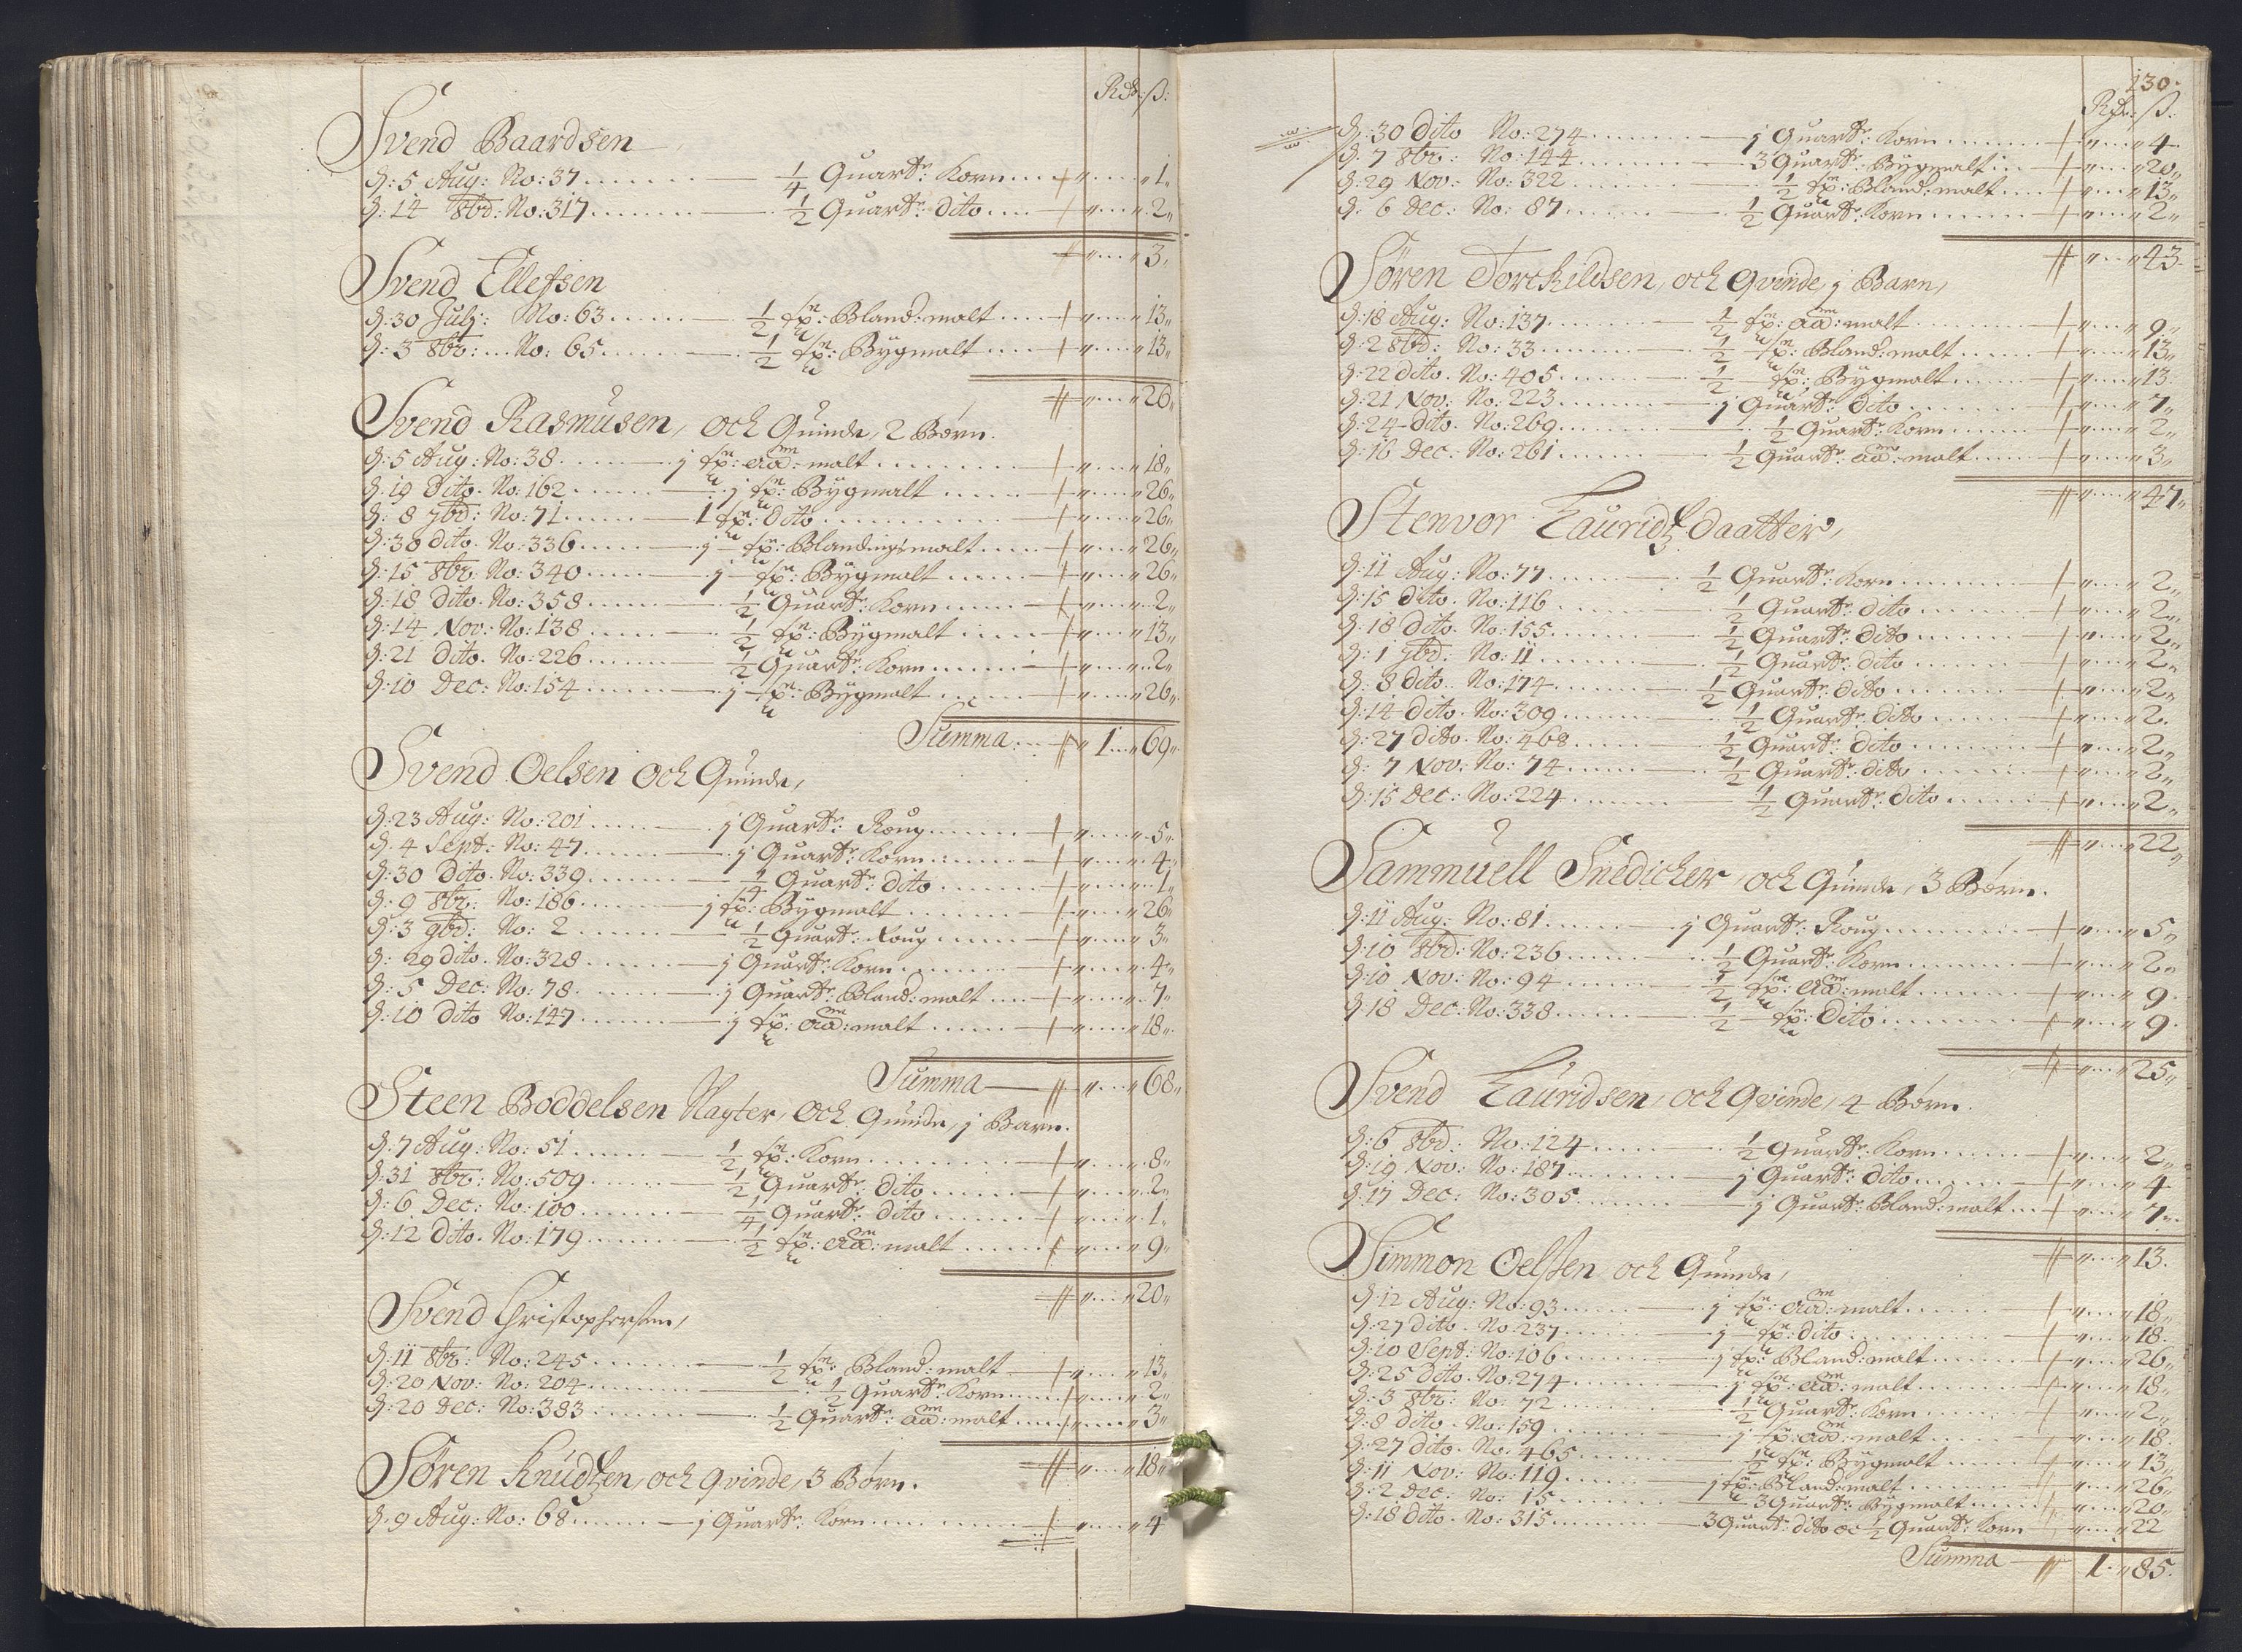 Rdr: ß:
Svend Baardsen
d: 5 Aug: No: 37 ¼ Quart: Korn 1
d: 14 8bd: No: 317 ½ Quart: dito 2
3
Svend Ellefsen
d: 30 Julj: No: 63 ½ tp: Bland: malt 13
d: 3 8br: No: 65 ½ tp: Bÿgmalt 13
26
Svend Rasmusen, och Quinde, 2 Børn.
d: 5 Aug: No: 38 j tp: aad: malt 18
d: 19 Dito. No: 162 j tp: Bÿgmalt 26
d: 8 7bd: No: 71 1 tp: dito 26
d: 30 dito. No: 336 j tp: Blandingsmalt 26
d: 15 8br: No: 340 j tp: Bÿgmalt 26
d: 18 dito. No: 358 ½ Quart: Korn 2
d: 14 Nov: No: 138 ½ tp: Bÿgmalt 13
d: 21 dito. No: 226 ½ Quart: Korn 2
d: 10 Dec: No: 154 j tp: Bÿgmalt 26
Summa 1 69
Svend Oelsen och Quinde,
d: 23 Aug: No: 201 j Quart: Roug 5
d: 4 Sept: No: 47 j Quart: Korn 4
d: 30 Dito. No: 339 ¼ Quart: dito 1
d: 9 8br: No: 186 j tp: Bÿgmalt 26
d: 3 9bd: No: 2 ½ Quart: Roug 3
d: 29 dito. No: 328 j Quart: Korn 4
d: 5 Dec: No: 78 j Quart: Bland: malt 7
d: 10 dito No: 147 j tp: aad: malt 18
Summa 68
Steen Boddelsen Vagter, och Quinde, j Barn.
d: 7 Aug: No: 51 ½ tp: Korn 8
d: 31 8br: No: 509 ½ Quart: dito 2
d: 6 Dec: No: 100 ¼ Quart: dito 1
d: 12 dito. No: 179 ½ tp: aad: malt 9
20
Svend Christophersen,
d: 11 8br: No: 245 ½ tp: Bland: malt 13
d: 20 Nov: No: 204 ½ Quart: Korn 2
d: 20 Dec: No: 383 ½ Quart: aad: malt 3
18
Søren Knudtzen, och qvinde, 3 Børn.
d: 9 Aug: No: 68 j Quart: Korn 4
130.
Rd: ß:
d: 30 dito No: 274 j Quart: Korn 4
d: 7 8br: No: 144 3 Quart: Bÿgmalt 20
d: 29 Nov: No: 322 ½ tp: Bland: malt 13
d: 6 Dec: No: 87 ½ Quart: Korn 2
43
Søren Torchildsen, och qvinde, j Barn,
d: 18 Aug: No: 137 ½ tp: aad: malt 9
d: 2 8bd: No: 33 ½ tp: Bland: malt 13
d: 22 dito. No: 405 ½ tp: Bÿgmalt 13
d: 21 Nov: No: 223 j Quart: dito 7
d: 24 dito. No: 269 ½ Quart: Korn 2
d: 16 Dec: No: 261 ½ Quart: aad: malt 3
47
Stenvor Lauridtz daatter,
d: 11 Aug: No: 77 ½ Quart: Korn 2
d: 15 dito. No: 116 ½ Quart: dito 2
d: 18 Dito. No: 155 ½ Quart: dito 2
d: 1 7bd: No: 11 ½ Quart: dito 2
d: 8 dito. No: 174 ½ Quart: dito 2
d: 14 dito. No: 309 ½ Quart: dito 2
d: 27 dito. No: 468 ½ Quart: dito 2
d: 7 Nov: No: 74 ½ Quart: dito 2
d: 15 Dec: No: 224 ½ Quart: dito 2
22
Sammuell Snedicker, och Quinde, 3 Børn.
d: 11 Aug: No: 81 j Quart: Roug 5
d: 10 8bd: No: 236 ½ Quart: Korn 2
d: 10 Nov: No: 94 ½ tp: aad: malt 9
d: 18 Dec: No: 338 ½ tp: dito 9
25
Svend Lauridsen, och qvinde, 4 Børn.
d: 6 8bd: No: 124 ½ Quart: Korn 2
d: 19 Nov: No: 187 j Quart: dito 4
d: 17 Dec: No: 305 j Quart: Bland: malt 7
13
Simmon Oelsen och Quinde,
d: 12 Aug: No: 93 j tp: aad: malt 18
d: 27 dito. No: 237 j tp: dito 18
d: 10 Sept: No: 106 j tp: Bland: malt 26
d: 25 dito. No: 274 j tp: aad: malt 18
d: 3 8br: No: 72 ½ Quart: Korn 2
d: 8 dito. No: 159 j tp: aad: malt 18
d: 27 dito. No: 465 ½ tp: Bÿgmalt 13
d: 11 Nov: No: 119 j tp: Bland: malt 26
d: 2 Dec: No: 15 3 Quart: Bÿgmalt 20
d: 18 dito. No: 315 3 Quart: dito oc ½ Quart: Korn 22
Summa 1 85